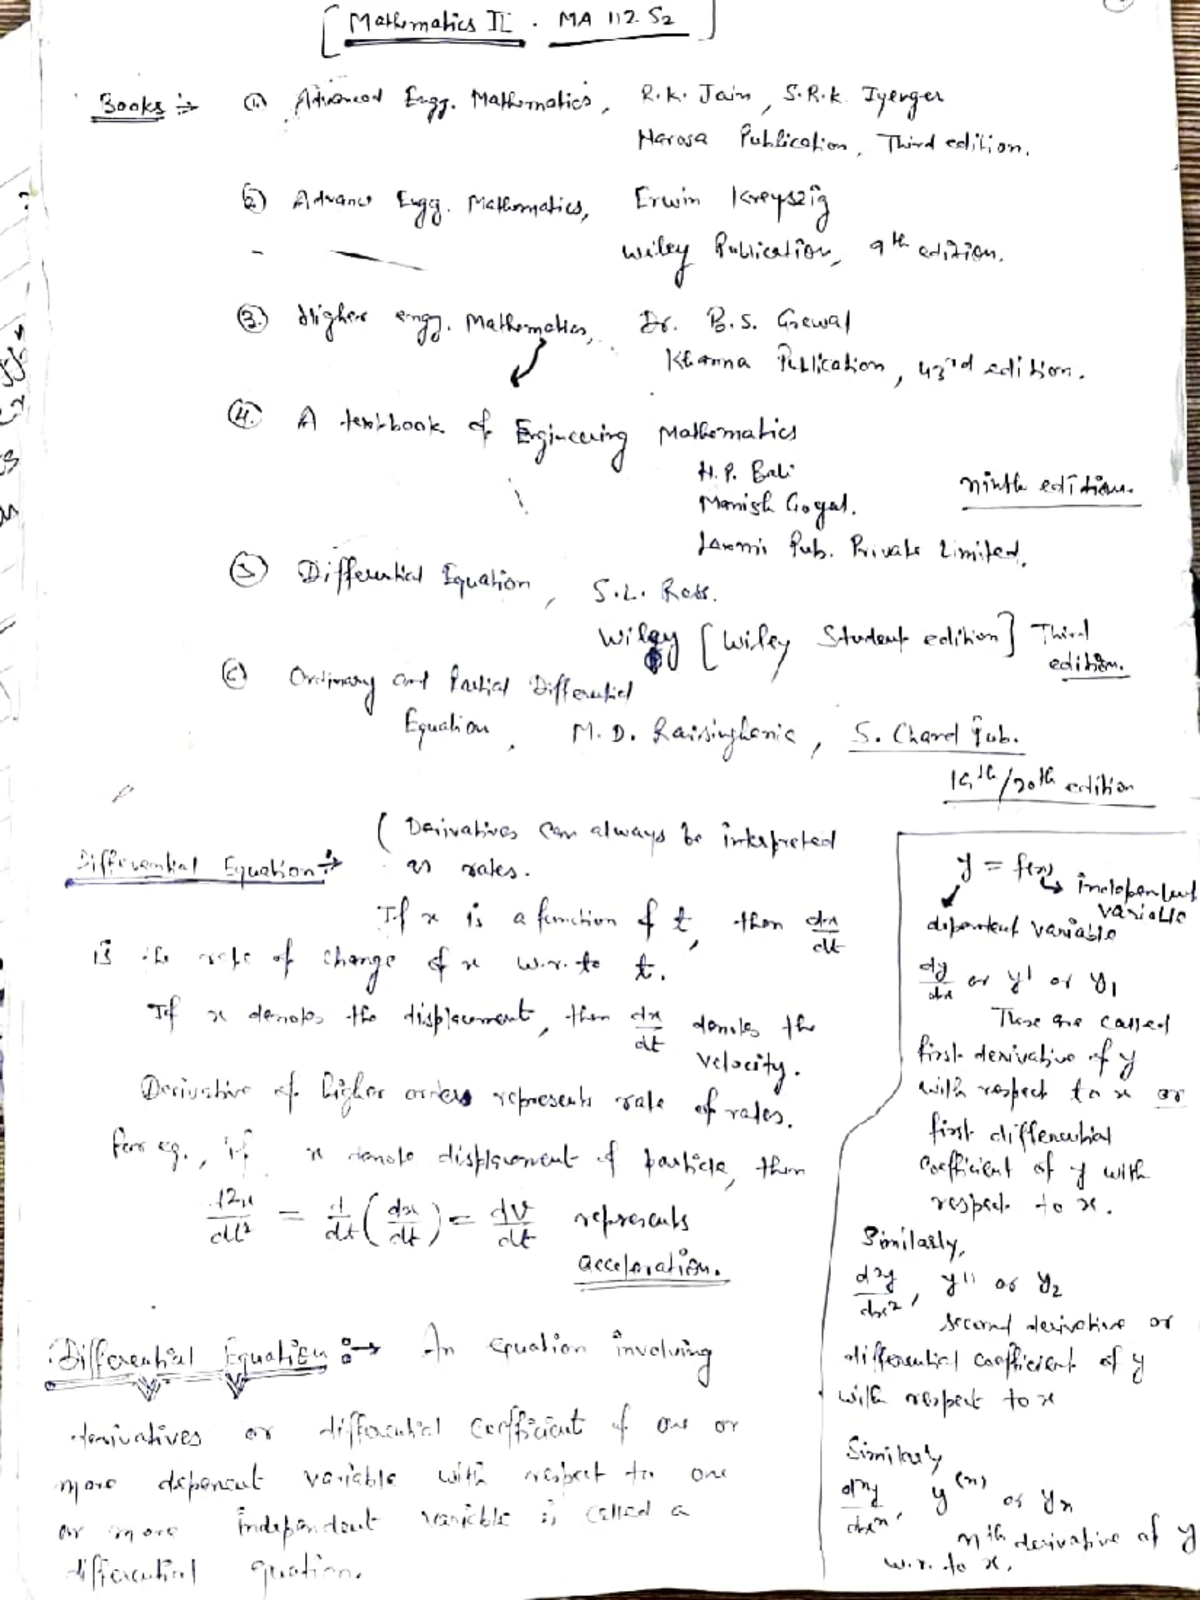 [Mathematics II . MA 112.S2]
Books :→ (1) Advanced Engg. Mathematics, R.K. Jain, S.R.K. Iyenger
Narosa Publication, Third edition.
(2) Advance Engg. Mathematics, Erwin Kreyszig
Wiley Publication, 9th edition.
(3.) Higher engg. Mathematics, Dr. B.S. Grewal
Khanna Publication, 43rd edition.
(4.) A textbook of Engineering Mathematics
N.P. Bali
Manish Goyal. ninth edition.
Laxmi Pub. Private Limited.
(5) Differential Equation, S.L. Ross.
Wiley [Wiley Student edition] Third
edition.
(6) Ordinary and Partial Differential
Equation, M.D. Raisinghania, S. Chand Pub.
19th/20th edition
Differential Equation :→ (Derivatives can always be interpreted
as rates.
If x is a function of t, then dx/dt
is the rate of change of x w.r. to t.
If x denotes the displacement, then dx/dt denotes the
velocity.
Derivative of higher orders represents rate of rates.
For eg., if x denote displacement of particle, then
d2x/dt² = d/dt (dx/dt) = dv/dt represents
acceleration.
Differential Equation :→ An equation involving
derivatives or differential coefficient of one or
more dependent variable with respect to one
or more independent variable is called a
differential equation.
y = f(x)
independent
variable
dependent variable
dy/dx or y' or y₁
These are called
first derivative of y
with respect to x or
first differential
coefficient of y with
respect to x.
Similarly,
d²y/dx², y'' or y₂
second derivative or
differential coefficient of y
with respect to x
Similarly
dⁿy/dxⁿ, y⁽ⁿ⁾ or yₙ
nth derivative of y
w.r. to x.